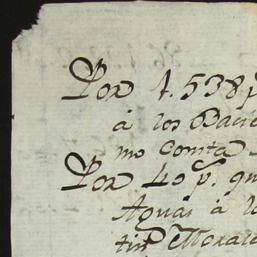 Por 1.538 p
á los Baci
mo Consta
Por 40 p. qu
Aguas à l
tin Mora